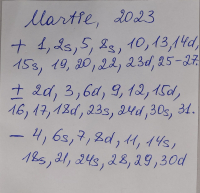 Martie, 2023
+ 1, 2s, 5, 8s, 10, 13, 14d,
15s, 19, 20, 22, 23d, 25-27.
± 2d, 3, 6d, 9, 12, 15d,
16, 17, 18d, 23s, 24d, 30s, 31.
- 4, 6s, 7, 8d, 11, 14s,
18s, 21, 24s, 28, 29, 30d